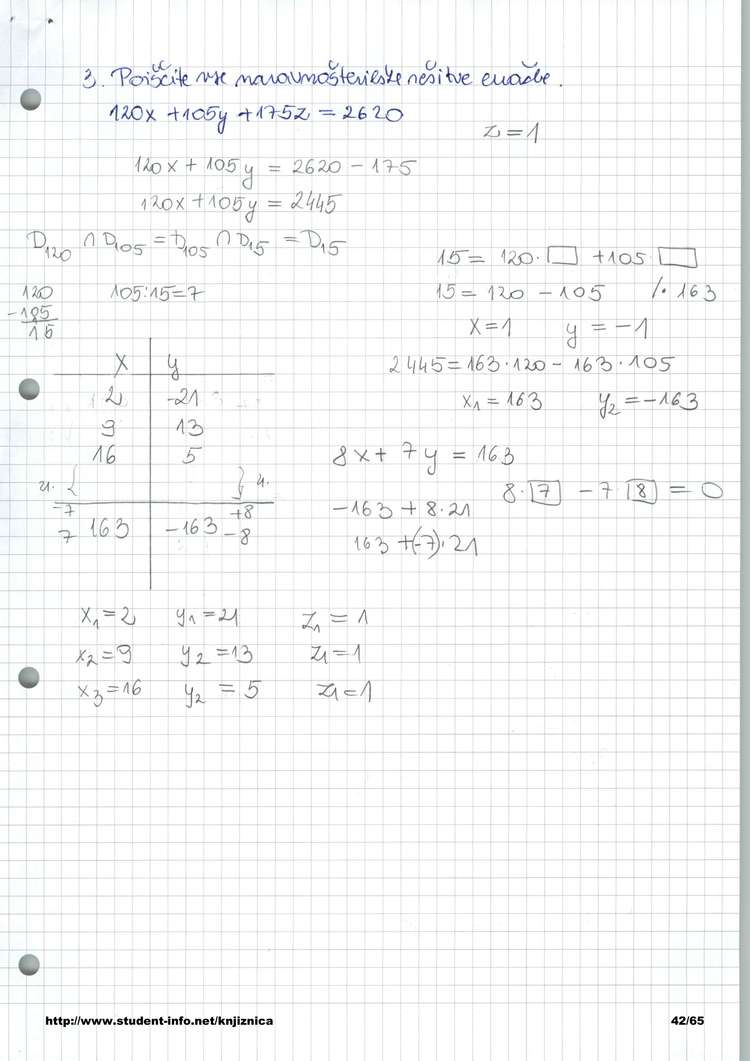 3. Poiščite vse naravnoštevilske rešitve enačbe.
120x + 105y + 175z = 2620
z = 1
120x + 105y = 2620 - 175
120x + 105y = 2445
D120 ∩ D105 = D105 ∩ D15 = D15
15 = 120 · □ + 105 · □
120 105:15=7
-105
15
15 = 120 - 105 /· 163
x = 1 y = -1
2445 = 163·120 - 163·105
x1 = 163 y2 = -163
x y
2 -21
9 13
16 5
-7 +8
7 163 -163 -8
8x + 7y = 163
8·7 - 7 8 = 0
-163 + 8·21
163 + (-7)·21
x1 = 2 y1 = 21 z1 = 1
x2 = 9 y2 = 13 z1 = 1
x3 = 16 y2 = 5 z1 = 1
http://www.student-info.net/knjiznica 42/65